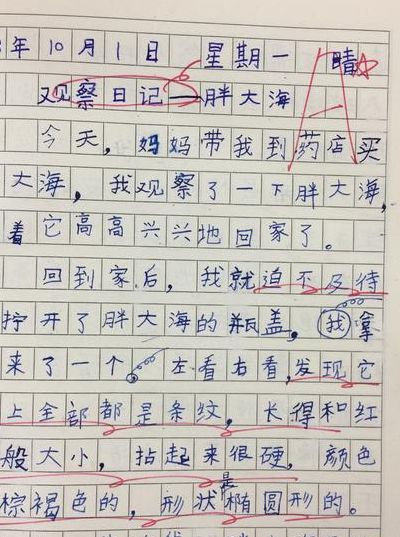 年10月1日 星期一 晴
观察日记——胖大海
今天，妈妈带我到药店买
大海，我观察了一下胖大海，
着它高高兴兴地回家了。
回到家后，我就迫不及待
拧开了胖大海的瓶盖，我拿
来了一个。左看右看，发现它
上全部都是条纹，长得和红
般大小，拈起来很硬，颜色
是
棕褐色的，形状椭圆形的。